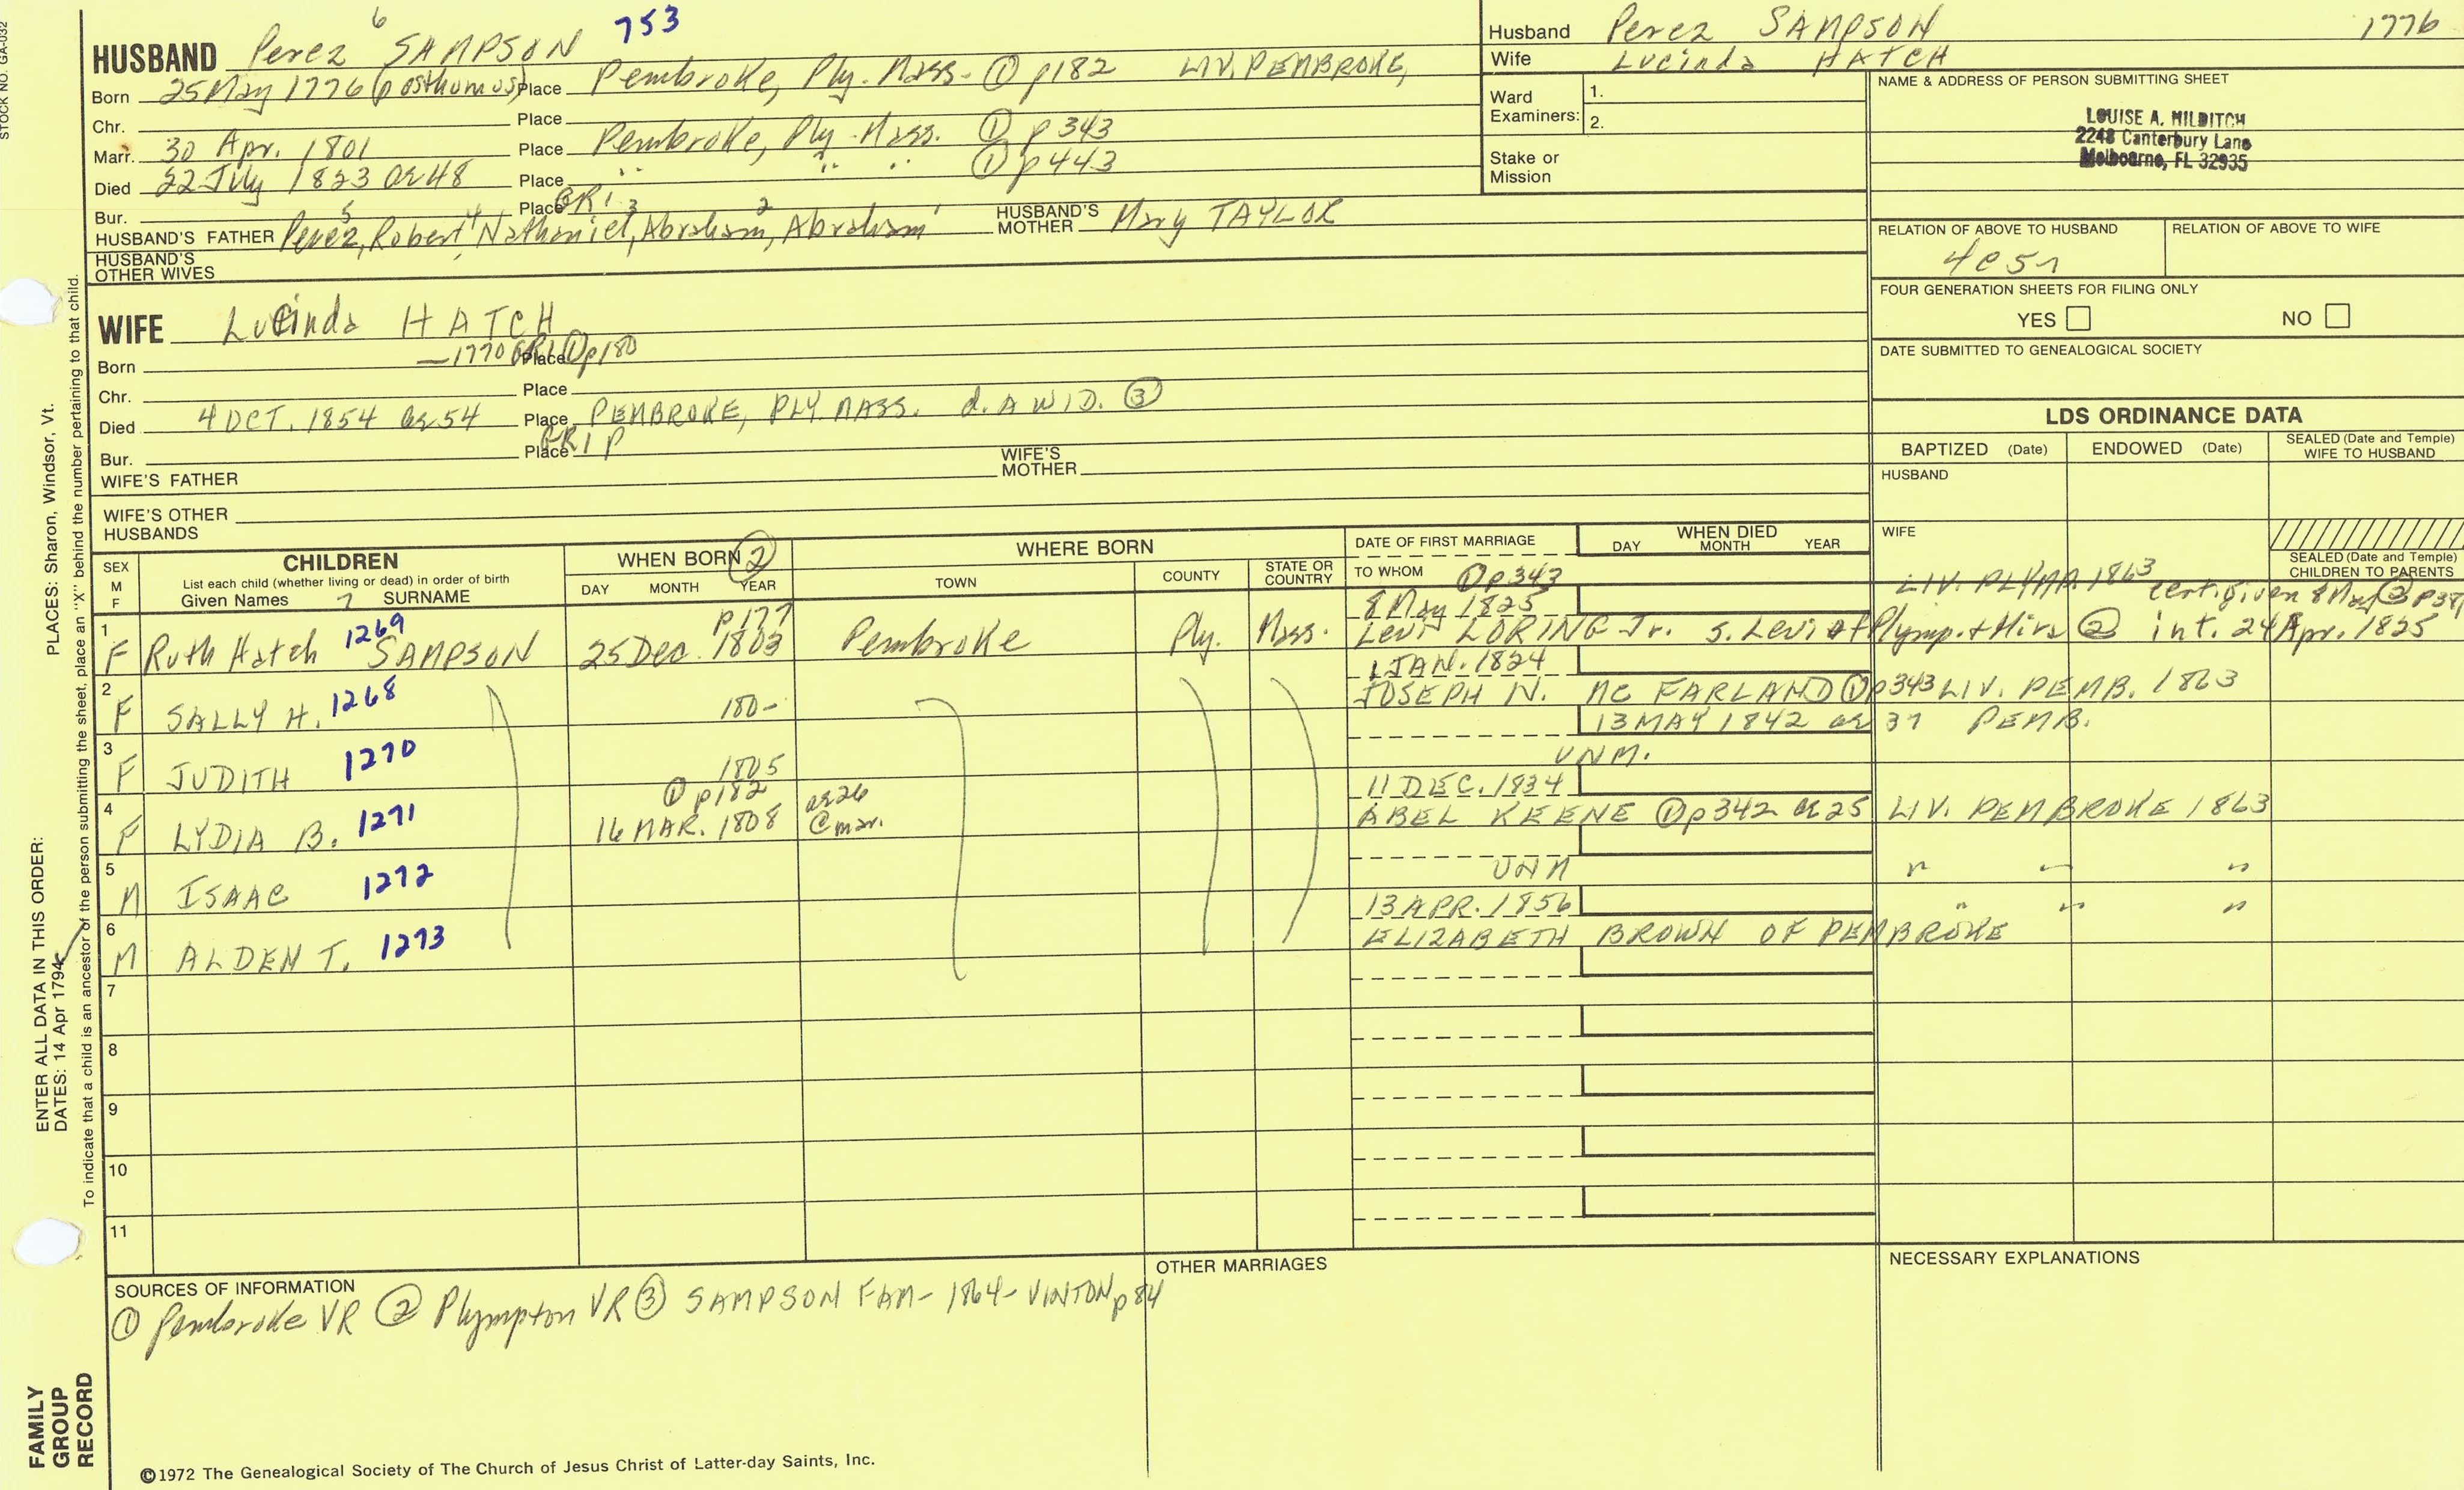 STOCK NO. GA-032
HUSBAND Perez 6 SAMPSON 753
Born 25 May 1776 (posthumos) Place Pembroke, Ply. Mass. ① p182 LIV. PEMBROKE,
Chr. Place
Marr. 30 Apr. 1801 Place Pembroke, Ply. Mass. ① p343
Died 22 July 1823 ae 48 Place " " " ① p443
Bur. Place GR1
HUSBAND'S FATHER Perez 5, Robert 4, Nathaniel 3, Abraham 2, Abraham 1 HUSBAND'S MOTHER Mary TAYLOR
HUSBAND'S OTHER WIVES
Husband Perez SAMPSON 1776
Wife Lucinda HATCH
Ward Examiners: 1.
2.
Stake or Mission
NAME & ADDRESS OF PERSON SUBMITTING SHEET
LOUISE A. MILDITCH
2248 Canterbury Lane
Melbourne, FL 32935
RELATION OF ABOVE TO HUSBAND
RELATION OF ABOVE TO WIFE
FOUR GENERATION SHEETS FOR FILING ONLY
YES NO
DATE SUBMITTED TO GENEALOGICAL SOCIETY
WIFE Lucinda HATCH
Born — 1770 GR1 Place ① p180
Chr. Place
Died 4 OCT. 1854 ae 54 Place PEMBROKE, PLY MASS. d. A WID. ③
Bur. Place GR1 P
WIFE'S FATHER WIFE'S MOTHER
WIFE'S OTHER HUSBANDS
LDS ORDINANCE DATA
BAPTIZED (Date) ENDOWED (Date) SEALED (Date and Temple) WIFE TO HUSBAND
HUSBAND
WIFE
SEALED (Date and Temple) CHILDREN TO PARENTS
SEX M F
CHILDREN
List each child (whether living or dead) in order of birth
Given Names 7 SURNAME
WHEN BORN ②
DAY MONTH YEAR
WHERE BORN
TOWN COUNTY STATE OR COUNTRY
DATE OF FIRST MARRIAGE
TO WHOM
WHEN DIED
DAY MONTH YEAR
① p343 LIV. PLYMP. 1863 cert. given 8 May ② p387
1 F Ruth Hatch 1269 SAMPSON p177 25 Dec. 1803 Pembroke Ply. Mass. 8 May 1825 Levi LORING Jr. s. Levi of Plymp. + Mira ② int. 24 Apr. 1825
2 F SALLY H. 1268 180- 1 JAN. 1824 JOSEPH N. MC FARLAND ① p343 LIV. PEMB. 1863
3 F JUDITH 1270 1805 UNM. 13 MAY 1842 ae 37 PEMB.
4 F LYDIA B. 1271 ① p182 16 MAR. 1808 ae 26 @ mar. 11 DEC. 1834 ABEL KEENE ① p342 ae 25 LIV. PEMBROKE 1863
5 M ISAAC 1272 UNM " " "
6 M ALDEN T. 1273 13 APR. 1856 ELIZABETH BROWN OF PEMBROKE " " "
7
8
9
10
11
SOURCES OF INFORMATION
① Pembroke VR ② Plympton VR ③ SAMPSON FAM - 1864 - VINTON p84
OTHER MARRIAGES
NECESSARY EXPLANATIONS
©1972 The Genealogical Society of The Church of Jesus Christ of Latter-day Saints, Inc.
FAMILY GROUP RECORD
ENTER ALL DATA IN THIS ORDER:
DATES: 14 Apr 1794
PLACES: Sharon, Windsor, Vt.
To indicate that a child is an ancestor of the person submitting the sheet, place an "X" behind the number pertaining to that child.